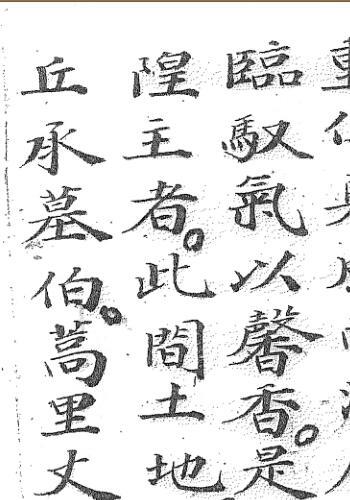 臨馭氣以馨香。是
隍主者。此間土地
丘承墓伯。蒿里丈